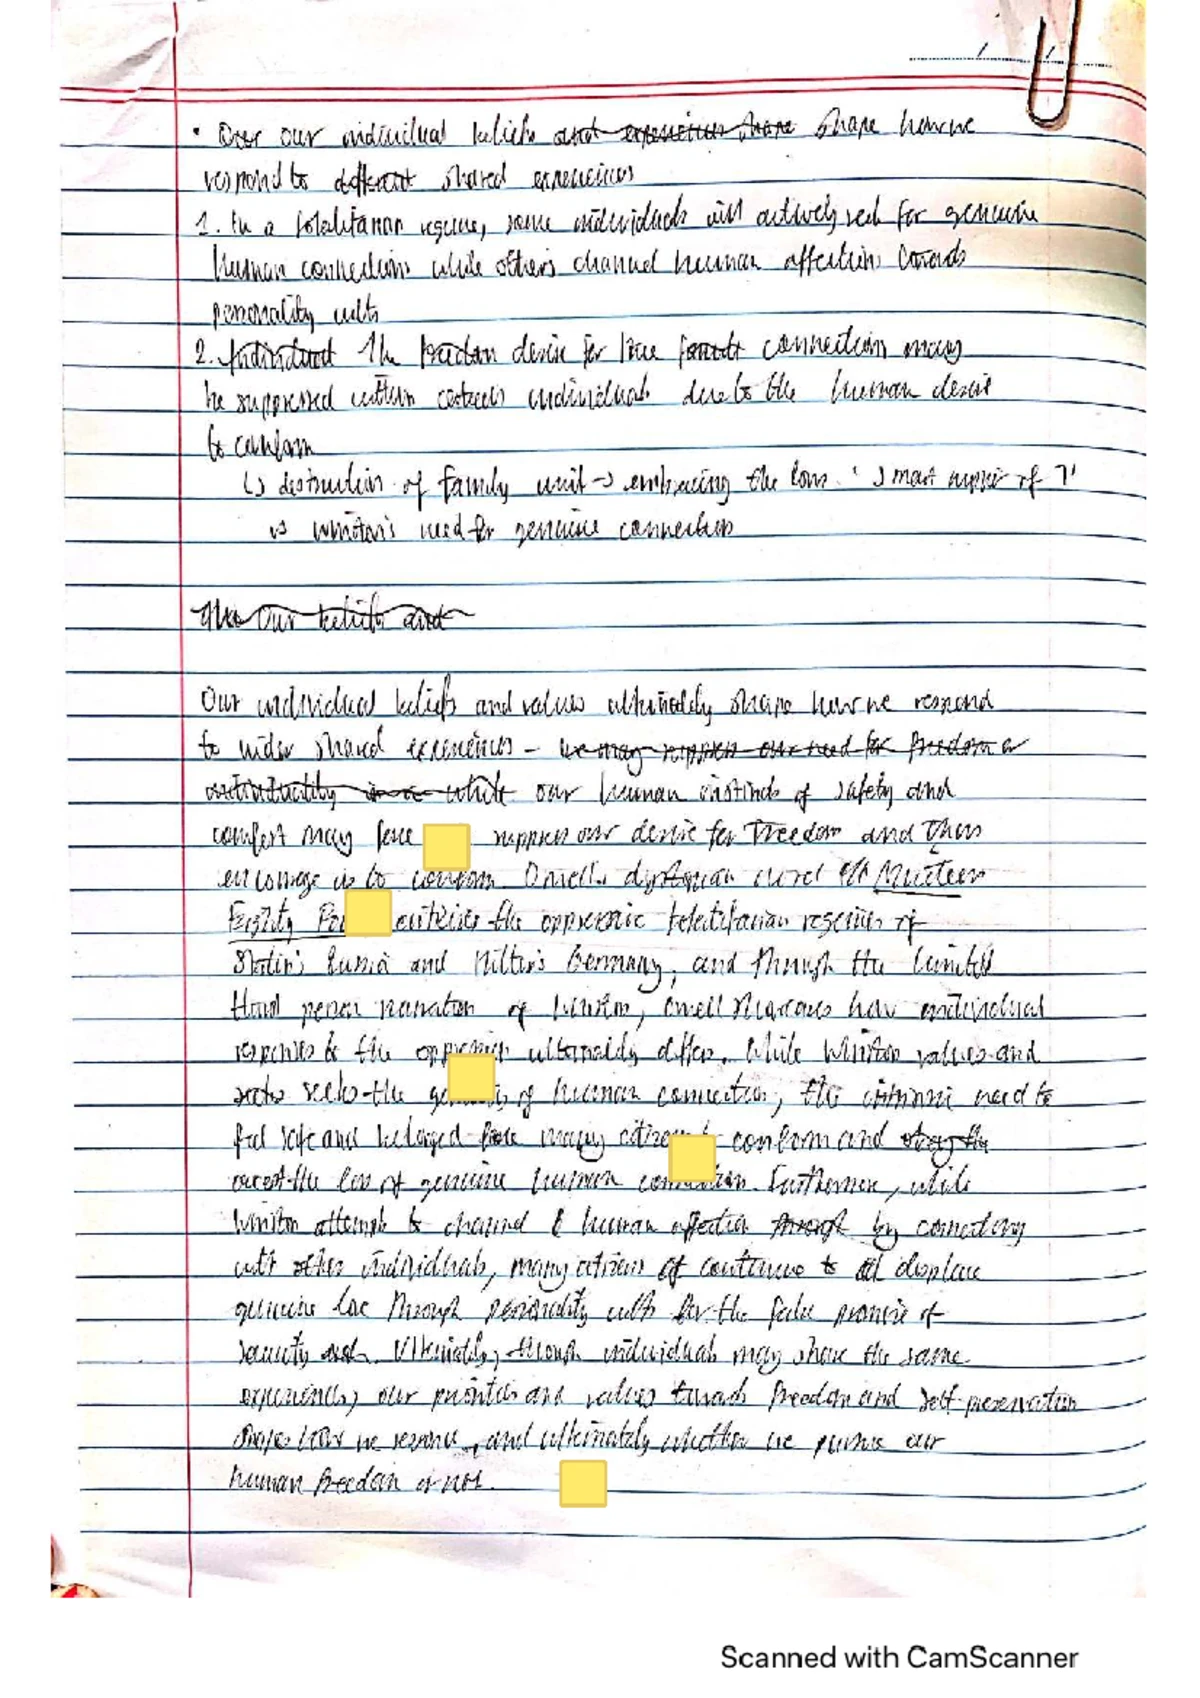 • Over our individual beliefs and experiences share shape how we
respond to different shared experiences
1. In a totalitarian regime, some individuals will actively seek for genuine
human connections while others channel human affections towards
personality cults
2. Individual The desire for true connections many
be suppressed within individuals due to the human desire
to conform
↳ destruction of family unit → embracing the loss. '
vs Winston's need for genuine connections
Our beliefs and
Our individual beliefs and values ultimately shape how we respond
to wider shared experiences - we may suppress our need for freedom or
individuality while our human instincts of safety and
comfort may force suppress our desire for freedom and thus
encourage us to conform. Orwell's dystopian novel Nineteen
Eighty the oppressive totalitarian regimes of
Stalin's Russia and Hitler's Germany, and through the limited
third person narration of Winston, Orwell how individual
responses to the ultimately differ. While Winston values and
seeks the of human connection, the intrinsic need to
feel safe and belonged force many conform and obey the
accept the loss of genuine human Furthermore, while
Winston attempts to channel human affection through by connecting
with other individuals, many citizens of continue to displace
genuine love through personality cults for the false promise of
security and. Ultimately, though individuals may share the same
experiences, our priorities and values towards freedom and self-preservation
shape how we response, and ultimately whether we pursue our
human freedom or not.
Scanned with CamScanner